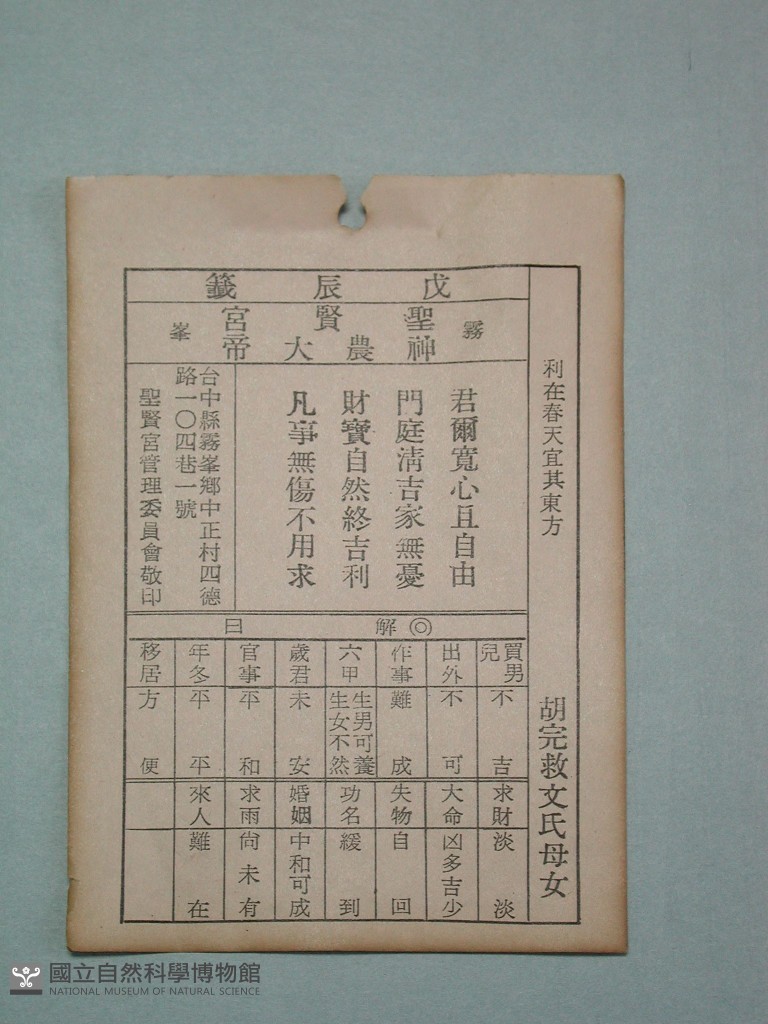 利在春天宜其東方
胡完救文氏母女
戊辰籤
霧峯
聖賢宮
神農大帝
君爾寬心且自由
門庭清吉家無憂
財寶自然終吉利
凡事無傷不用求
台中縣霧峯鄉中正村四德
路一〇四巷一號
聖賢宮管理委員會敬印
◎解曰
買男兒 不吉
出外 不可
作事 難成
六甲 生男可養生女不然
歲君 未安
官事 平和
年冬 平平
移居 方便
求財 淡淡
大命 凶多吉少
失物 自回
功名 緩到
婚姻 中和可成
求雨 尚未有
來人 難在
國立自然科學博物館
NATIONAL MUSEUM OF NATURAL SCIENCE